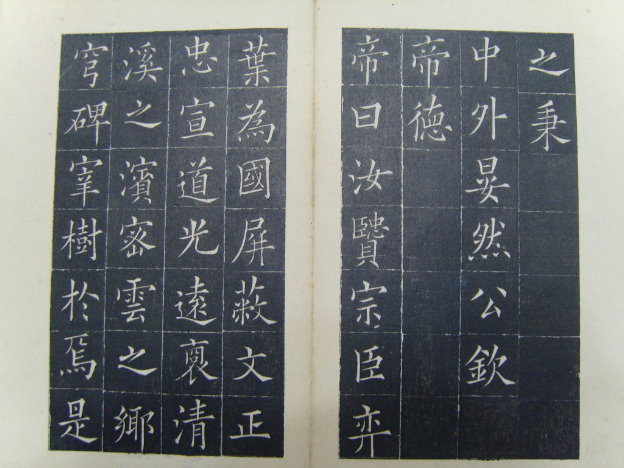 之秉
中外晏然公欽
帝德
帝曰汝賢宗臣弈
葉為國屏蔽文正
忠宣道光遠裔清
溪之濱密雲之鄉
穹碑宰樹於焉是